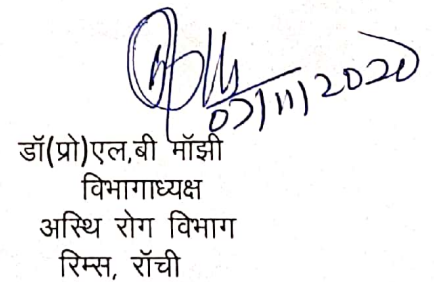 07/11/2020
डॉ(प्रो)एल,बी मॉझी
विभागाध्यक्ष
अस्थि रोग विभाग
रिम्स, रॉची